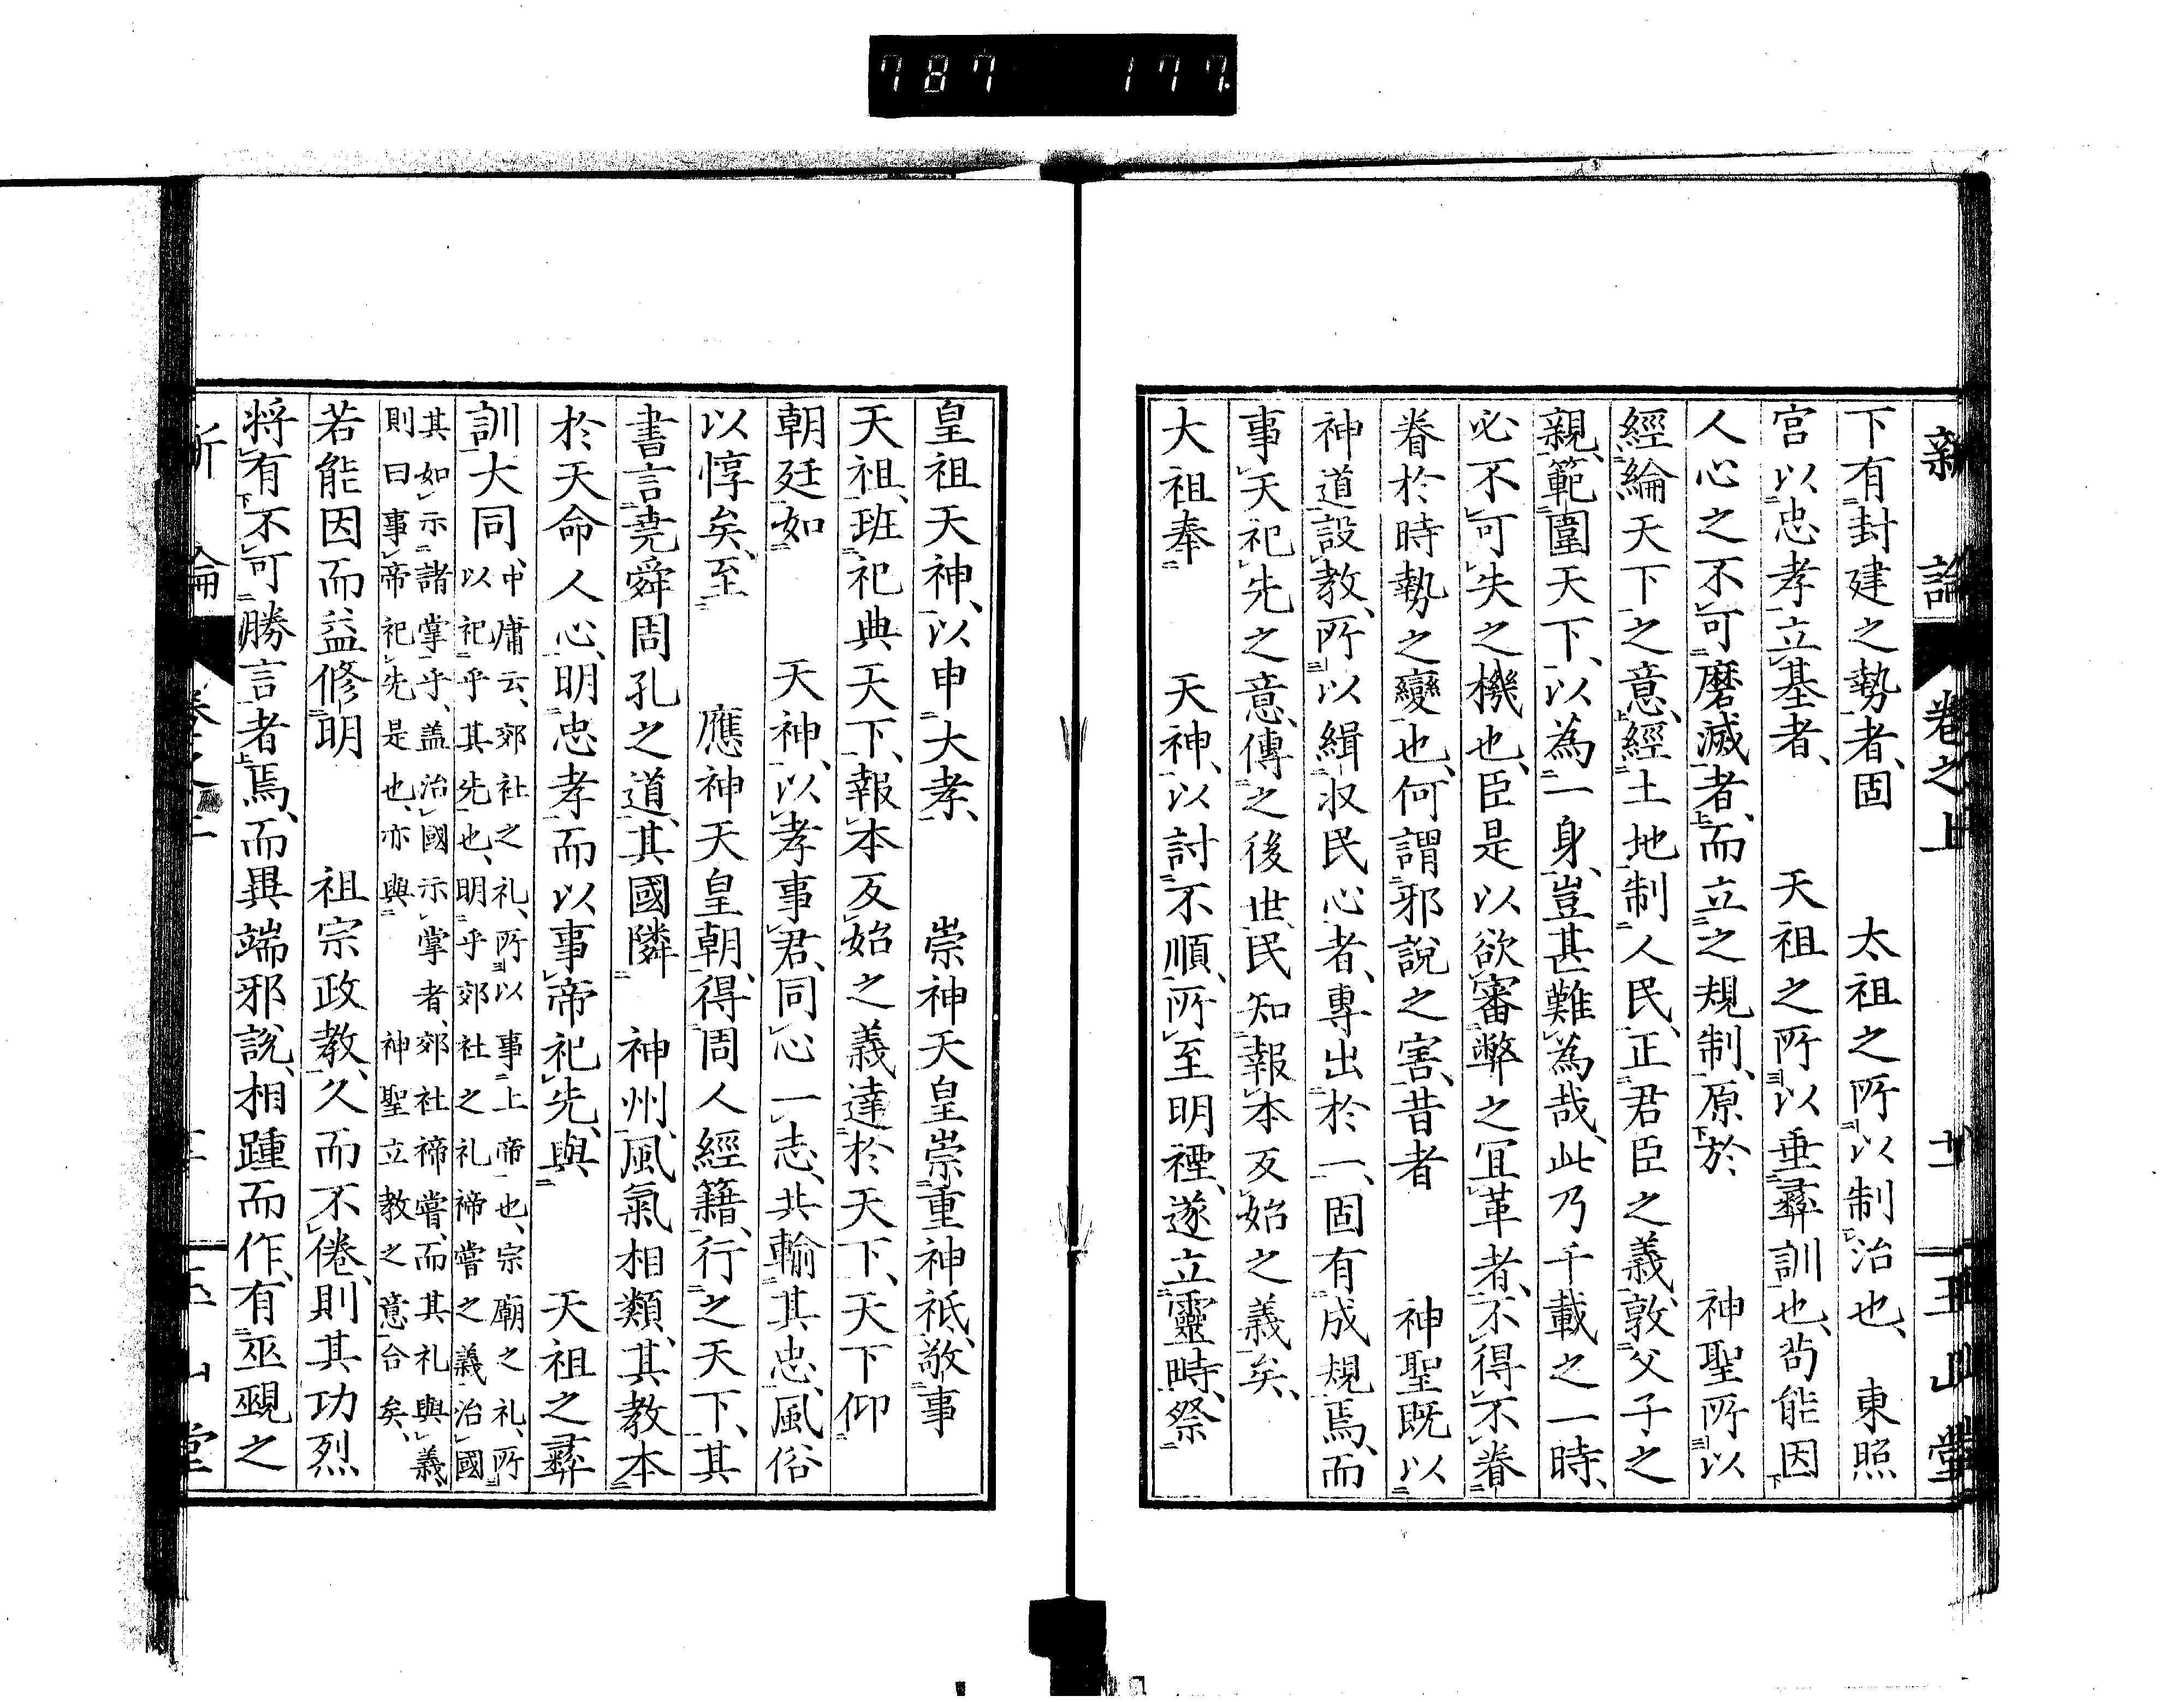 787 177
新論 卷之上 十一 玉山堂
下有封建之勢者、固 太祖之所以制治也、 東照
宮以忠孝立基者、 天祖之所以垂彝訓也、尚能因
人心之不可磨滅者、而立之規制、原於 神聖所以
經綸天下之意、經土地制人民、正君臣之義、敦父子之
親、範圍天下、以為一身、豈甚難為哉、此乃千載之一時、
必不可失之機也、臣是以欲審弊之宜革者、不得不眷
眷於時勢之變也、何謂邪說之害、昔者 神聖既以
神道設教、所以緝収民心者、專出於一、固有成規焉、而
事天祀先之意、傳之後世、民知報本反始之義矣、
大祖奉 天神、以討不順、所至明禋、遂立靈畤、祭
皇祖天神、以申大孝、 崇神天皇崇重神祇、敬事
天祖、班祀典天下、報本反始之義達於天下、天下仰
朝廷如 天神、以孝事君、同心一志、共輸其忠、風俗
以惇矣、至 應神天皇朝、得周人經籍、行之天下、其
書言堯舜周孔之道、其國隣 神州、風氣相類、其教本
於天命人心、明忠孝、而以事帝祀先、與 天祖之彝
訓大同、中庸云、郊社之礼、所以事上帝也、宗廟之礼、所
以祀乎其先也、明乎郊社之礼禘嘗之義、治國
其如示諸掌乎、盖治國示掌者、郊社禘嘗、而其礼與義、
則曰事帝祀先是也、亦與 神聖立教之意合矣、
若能因而益修明 祖宗政教、久而不倦、則其功烈
將有不可勝言者焉、而異端邪說、相踵而作、有巫覡之
論 卷之上 堂